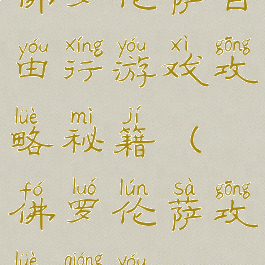 yóu xíng yóu xì gōng
由行游戏攻
lüè mì jí
略秘籍（
fó luó lún sà gōng
佛罗伦萨攻